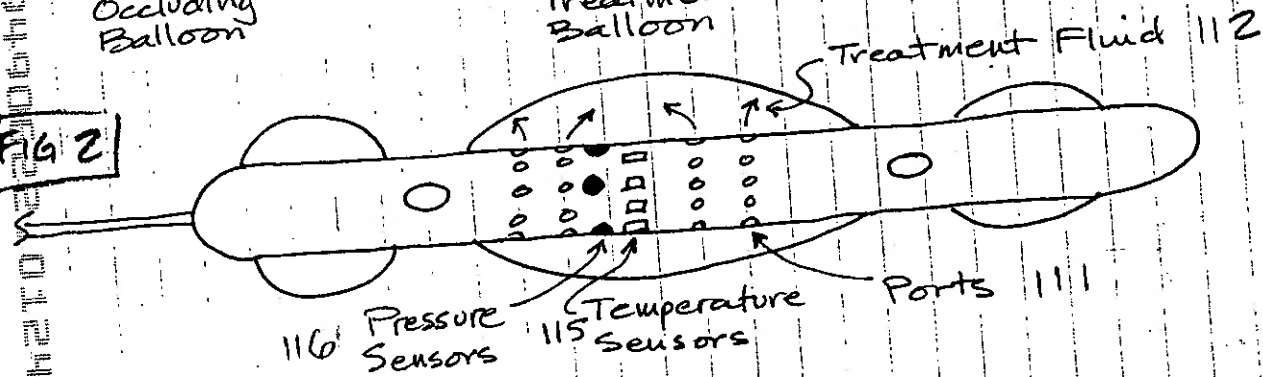 Occluding
Balloon
Balloon
Treatment Fluid 112
FIG 2
116 Pressure
Sensors
115 Temperature
Sensors
Ports 111